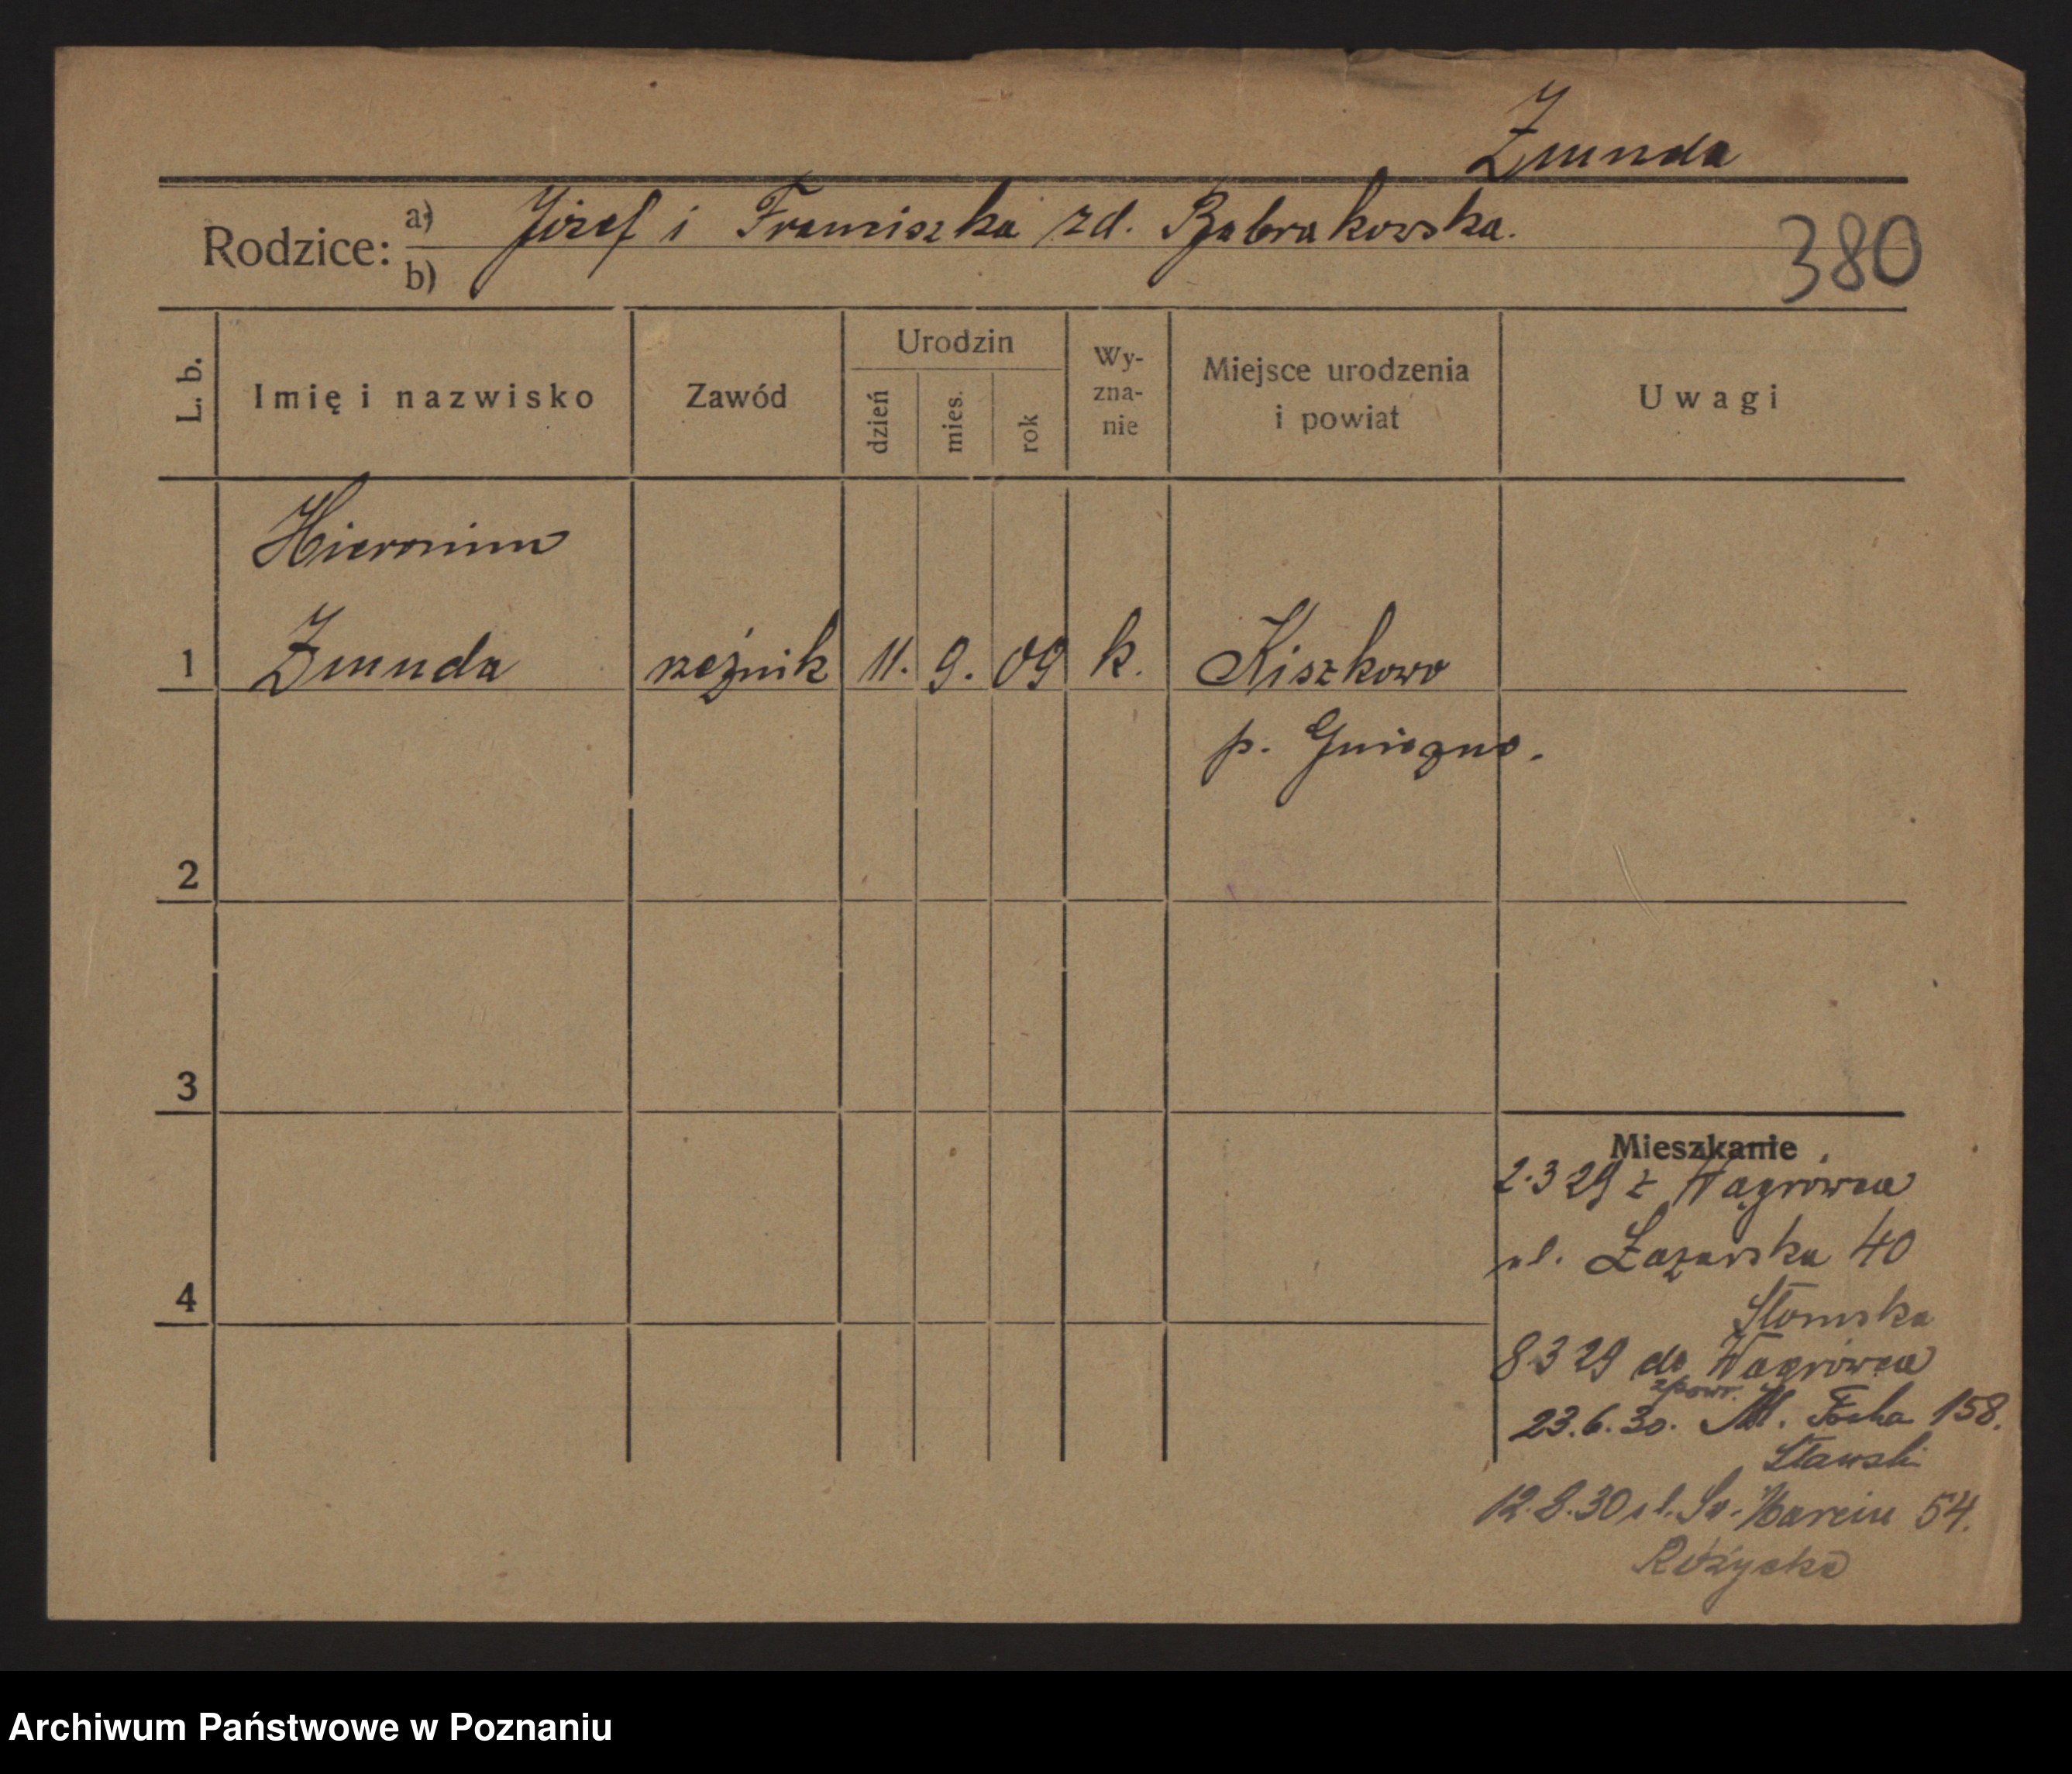 Żmuda
Rodzice: a) Józef i Franciszka zd. Bąbrakowska.
b)
380
L. b.
Imię i nazwisko
Zawód
Urodzin
dzień
mies.
rok
Wy-
zna-
nie
Miejsce urodzenia
i powiat
Uwagi
Hieronim
1 Żmuda rzeźnik 11. 9. 09 k. Kiszkowo
p. Gniezno.
2
3
4
Mieszkanie
2.3 29 z Wągrówca
ul. Łazarska 40
Słomska
8.3 29 do Wągrówca
zpowr.
23.6.30. M. Focha 158.
Stawski
12.8.30 ul. Św. Marcin 54.
Różycka
Archiwum Państwowe w Poznaniu